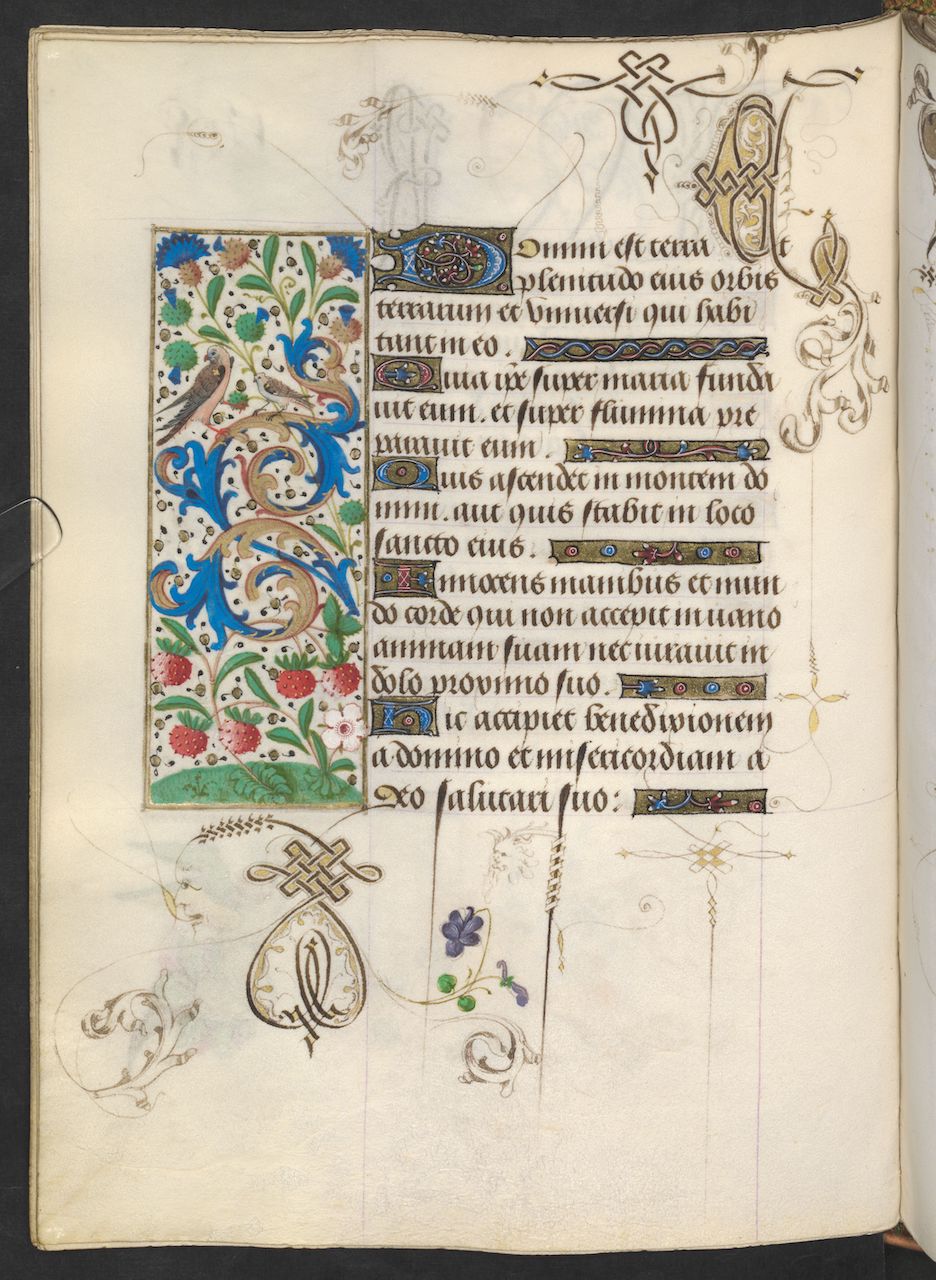 Domini est terra et
plenitudo eius orbis
terrarum et vniuersi qui habi
tant in eo.
Quia ipse super maria funda
uit eum. et super flumina pre
parauit eum.
Quis ascendet in montem do
mini. aut quis stabit in loco
sancto eius.
Innocens manibus et mun
do corde qui non accepit in uano
animam suam nec iurauit in
dolo proximo suo.
Hic accipiet benedixionem
a domino et misericordiam a
deo salutari suo: